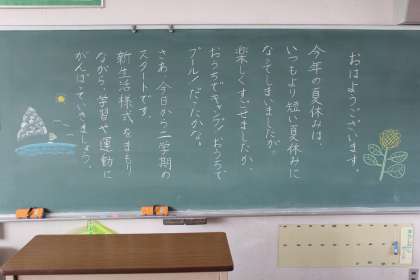 おはようございます。
今年の夏休みは
いつもより短い夏休みに
なってしまいましたが、
楽しくすごせましたか。
おうちでキャンプ/おうちで
プール/だったかな。
さあ、今日から二学期の
スタートです。
新生活様式をまもり
ながら、学習や運動に
がんばっていきましょう。